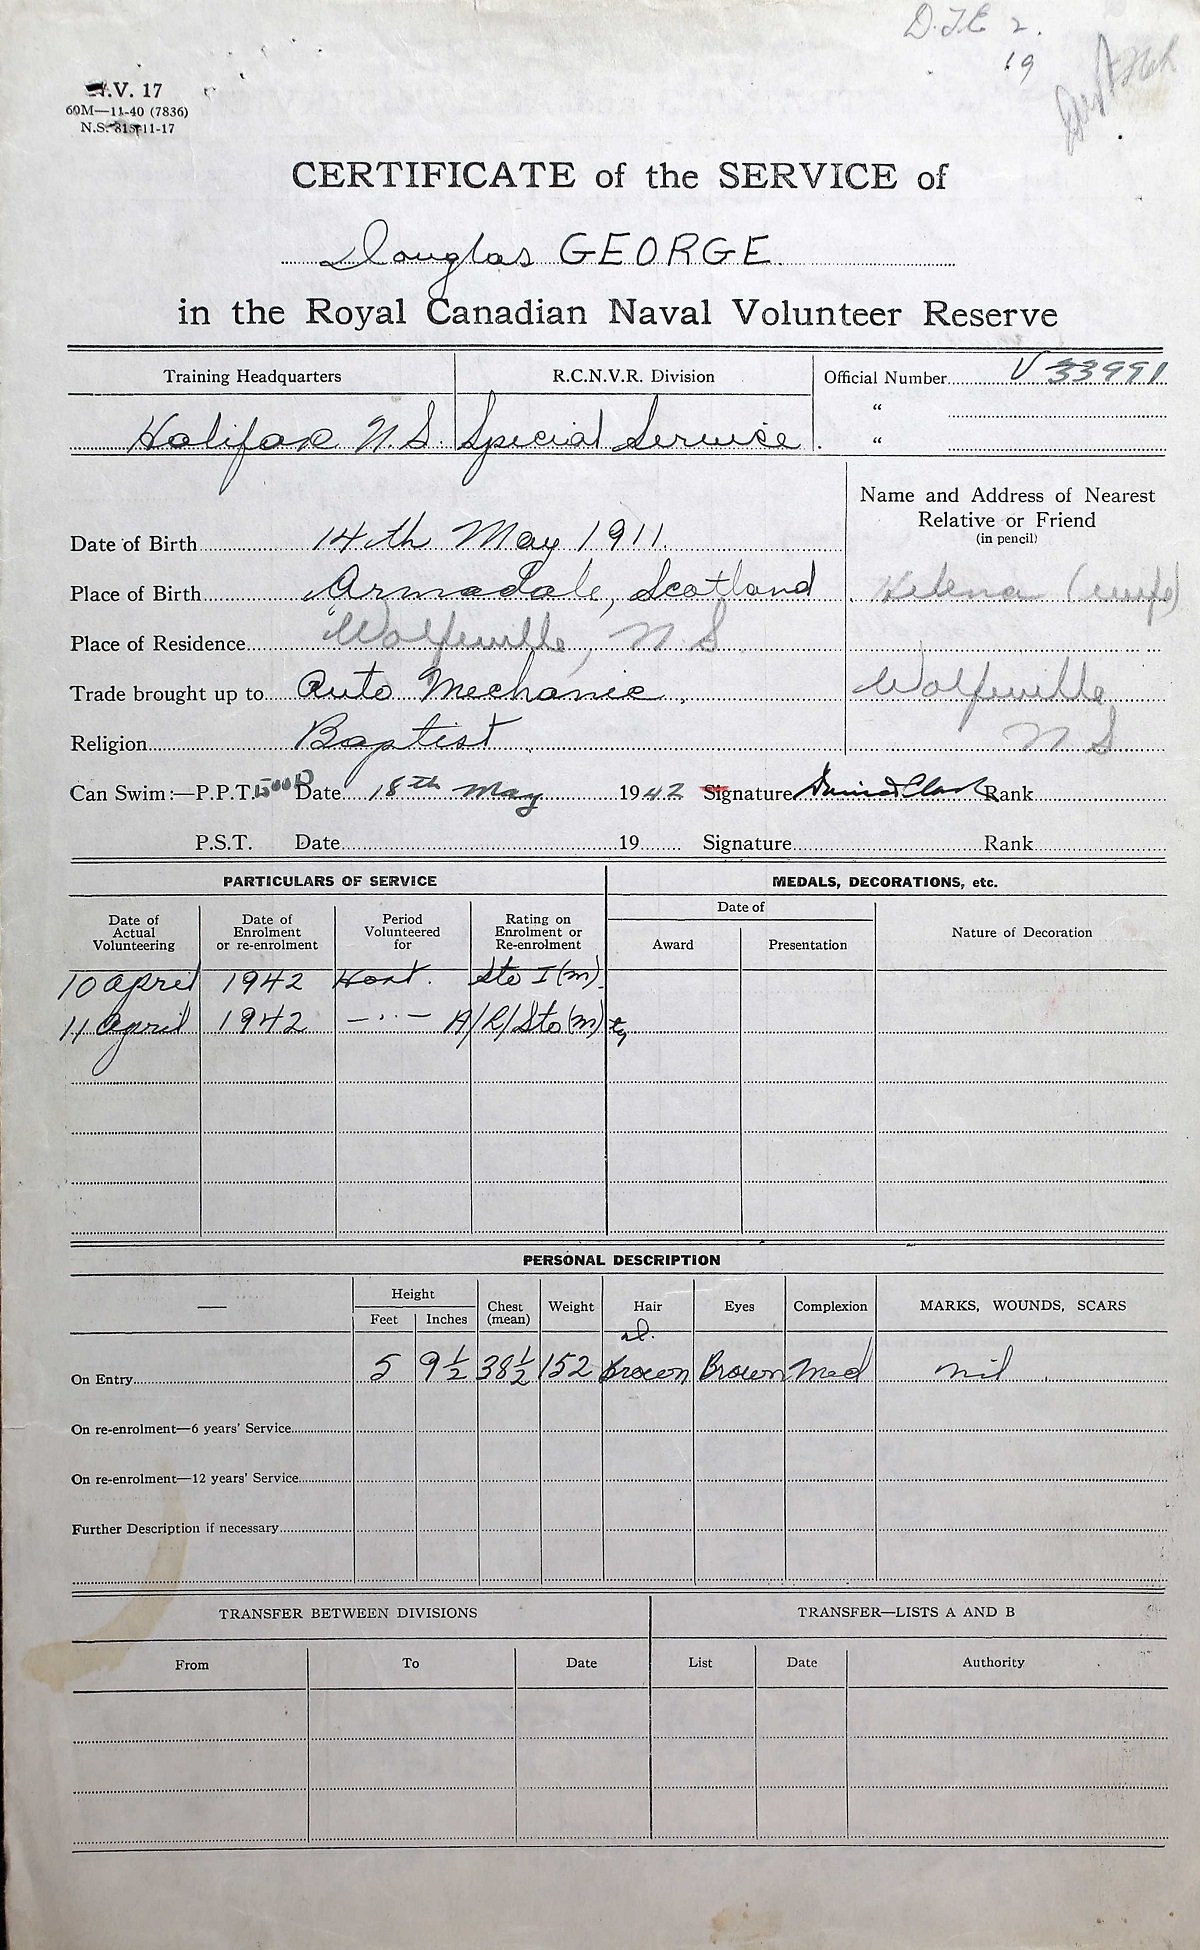 D.T.E 2.
19
N.V. 17
60M—11-40 (7836)
N.S. 815-11-17
CERTIFICATE of the SERVICE of
Douglas GEORGE
in the Royal Canadian Naval Volunteer Reserve
Training Headquarters R.C.N.V.R. Division Official Number V 33991
Halifax N.S. Special Service "
"
Name and Address of Nearest
Relative or Friend
(in pencil)
Date of Birth 14th May 1911
Place of Birth Armadale, Scotland Helena (wife)
Place of Residence Wolfeville, N.S.
Trade brought up to Auto Mechanic Wolfeville
Religion Baptist N S
Can Swim:—P.P.T. Date 18th May 1942 Signature Rank
P.S.T. Date 19 Signature Rank
PARTICULARS OF SERVICE MEDALS, DECORATIONS, etc.
Date of Actual Volunteering Date of Enrolment or re-enrolment Period Volunteered for Rating on Enrolment or Re-enrolment Date of Nature of Decoration
Award Presentation
10 April 1942 Host. Sto I (M)
11 April 1942 — " — A/L/Sto (M) ty
PERSONAL DESCRIPTION
— Height Chest (mean) Weight Hair Eyes Complexion MARKS, WOUNDS, SCARS
Feet Inches
d.
On Entry 5 9½ 38½ 152 Brown Brown Med nil
On re-enrolment—6 years' Service
On re-enrolment—12 years' Service
Further Description if necessary
TRANSFER BETWEEN DIVISIONS TRANSFER—LISTS A AND B
From To Date List Date Authority